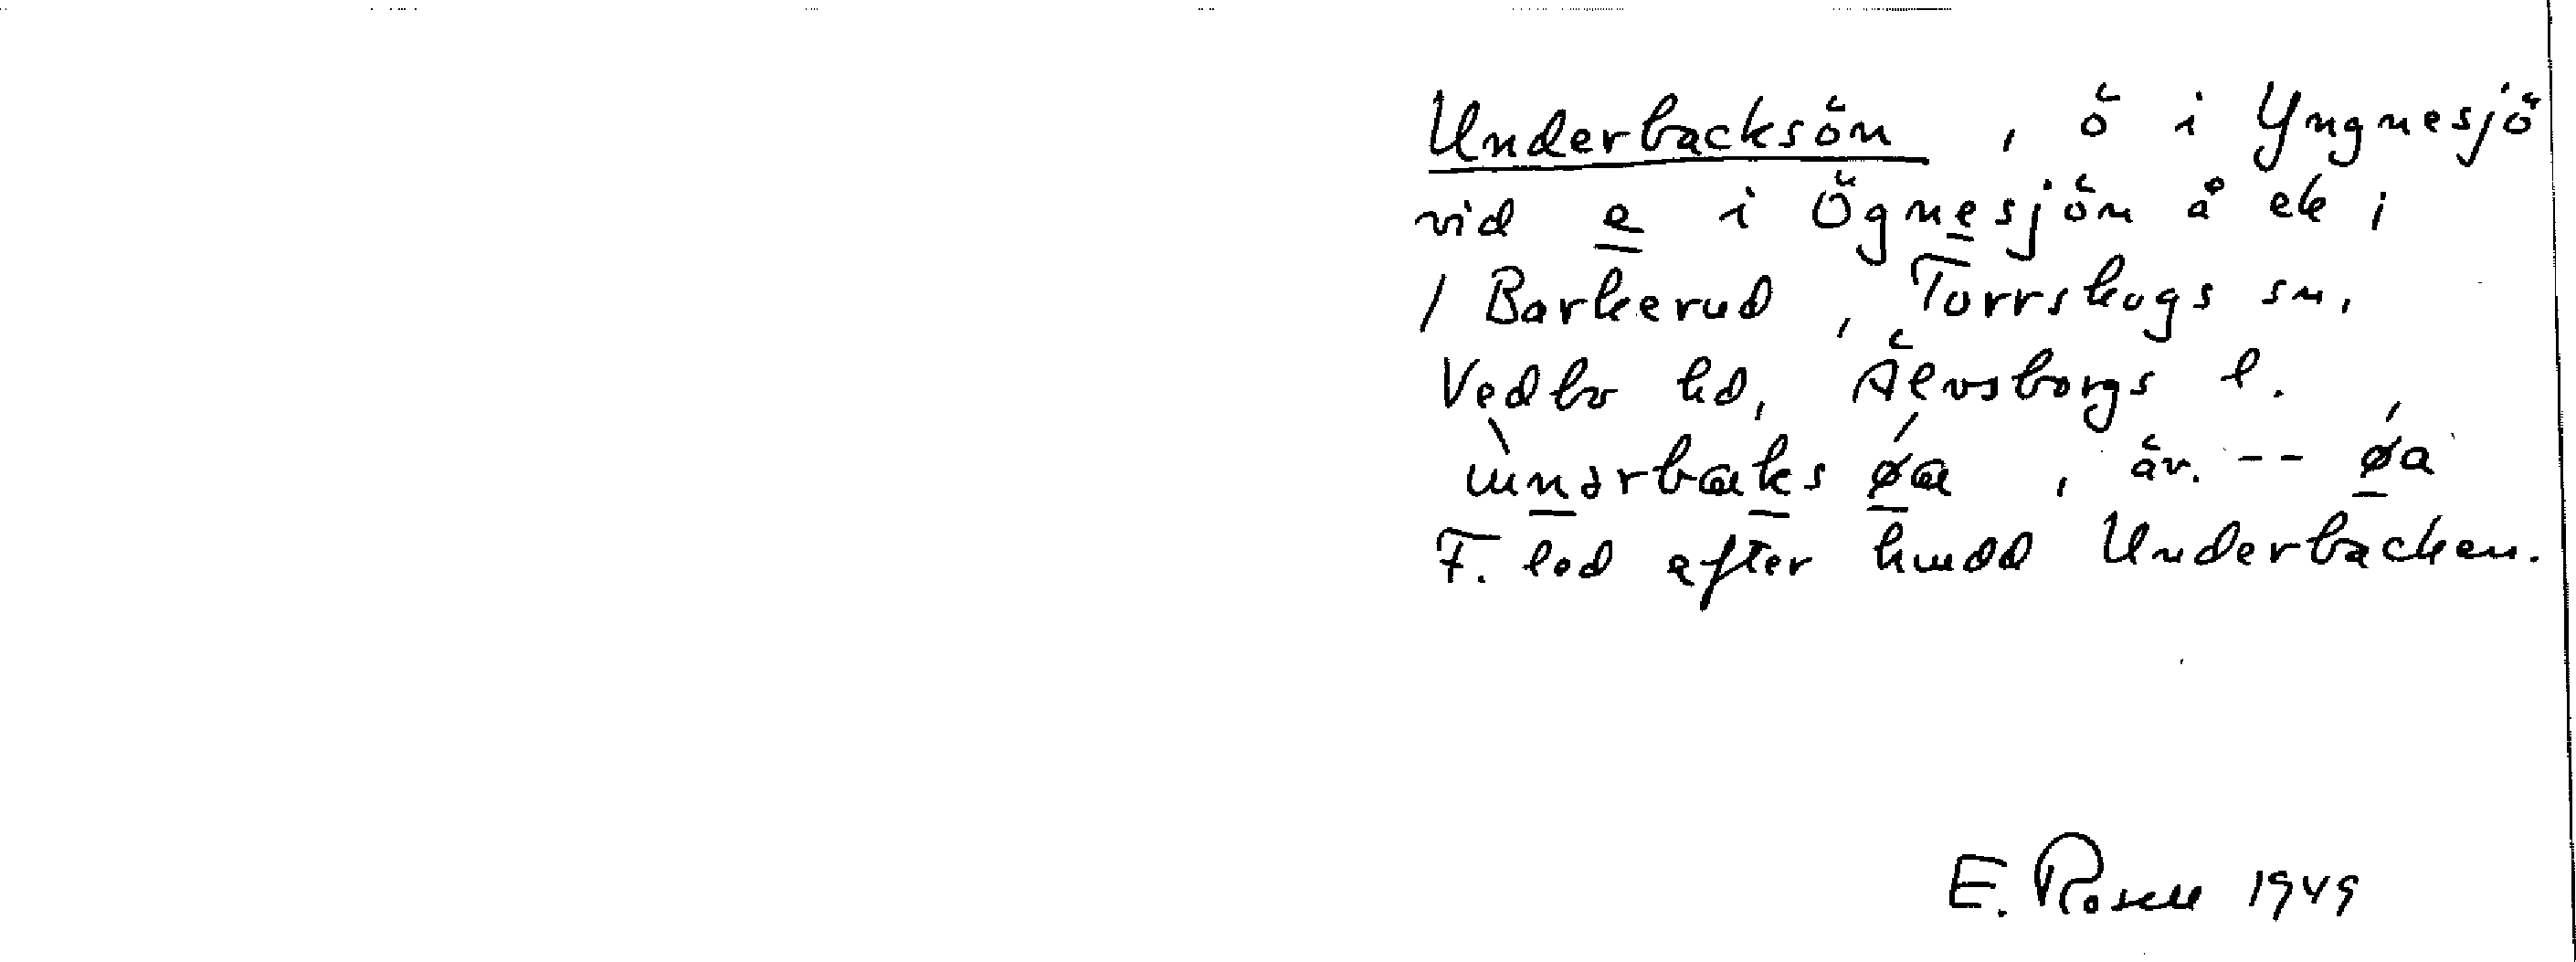 Underbacksön , ö i Yngnesjö
vid e i Ögnesjön å ek i
/ Barkerud , Torrskogs sn,
Vedbo hd, Älvsborgs l.
ùnərbaks ǿa , äv. -- ǿa
F. led efter hmdd Underbacken.
E. Rosell 1949